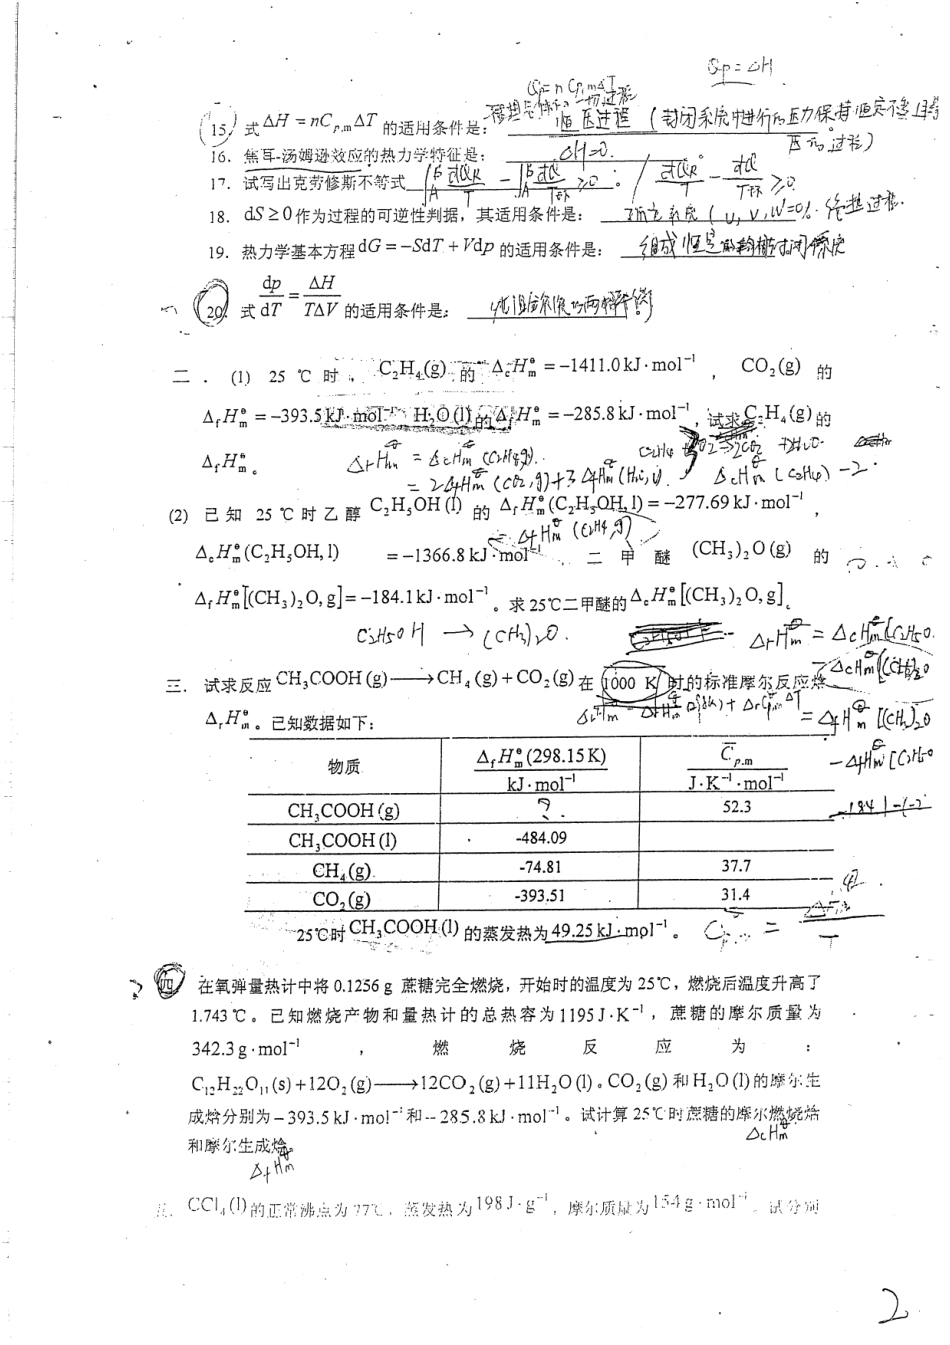 Qp=ΔH
Qp=nCp,mΔT
理想气体 一切过程
15. 式 ΔH = nC_{p,m}ΔT 的适用条件是: 恒压过程 (封闭系统中进行的压力保持恒定不变且等
压的过程)
16. 焦耳-汤姆逊效应的热力学特征是: ΔH=0.
17. 试写出克劳修斯不等式 ∫_A^B đQ_R/T - ∫_A^B đQ/T环 ≥0 。 / đQ_R/T - đQ/T环 ≥0
18. dS≥0作为过程的可逆性判据，其适用条件是: 孤立系统 (U,V,W'=0). 绝热过程.
19. 热力学基本方程 dG = -SdT + Vdp 的适用条件是: 组成恒定的均相封闭系统
20. 式 dp/dT = ΔH/(TΔV) 的适用条件是:
二. (1) 25 ℃ 时, C₂H₄(g) 的 Δ_cH_m^⊖ = -1411.0 kJ·mol⁻¹ , CO₂(g) 的
Δ_fH_m^⊖ = -393.5 kJ·mol⁻¹ H₂O(l)的Δ_fH_m^⊖ = -285.8 kJ·mol⁻¹, 试求C₂H₄(g)的
Δ_fH_m^⊖ 。
ΔrHm^⊖ = ΔcHm^⊖ (C₂H₄,g).
C₂H₄ 3O₂→2CO₂ +2H₂O
= 2ΔfHm^⊖ (CO₂,g)+
ΔcHm^⊖ (C₂H₄) -2
(2) 已知 25 ℃ 时乙醇 C₂H₅OH (l) 的 Δ_fH_m^⊖(C₂H₅OH, l) = -277.69 kJ·mol⁻¹ ,
- ΔfHm^⊖ (C₂H₄,g)
Δ_cH_m^⊖(C₂H₅OH, l) = -1366.8 kJ·mol⁻¹ , 二甲醚 (CH₃)₂O (g) 的
Δ_fH_m^⊖[(CH₃)₂O, g] = -184.1 kJ·mol⁻¹ 。求 25℃二甲醚的Δ_cH_m^⊖[(CH₃)₂O, g]。
C₂H₅OH → (CH₃)₂O.
ΔrHm^⊖ = ΔcHm^⊖[C₂H₅O
- ΔcHm^⊖[(CH₃)₂O
三. 试求反应 CH₃COOH (g) ⟶ CH₄ (g) + CO₂ (g) 在 1000 K 时的标准摩尔反应焓
Δ_rH_m^⊖ 。已知数据如下:
= ΔfHm^⊖ [(CH₃)₂O
- ΔfHm^⊖ [C₂H₅O
物质 Δ_fH_m^⊖(298.15 K)/kJ·mol⁻¹ C̄_{p,m}/J·K⁻¹·mol⁻¹
CH₃COOH (g) ? 52.3
CH₃COOH (l) -484.09
CH₄(g) -74.81 37.7
CO₂(g) -393.51 31.4
25℃时 CH₃COOH (l) 的蒸发热为 49.25 kJ·mol⁻¹ 。
? 四 在氧弹量热计中将 0.1256 g 蔗糖完全燃烧，开始时的温度为 25℃，燃烧后温度升高了
1.743℃。已知燃烧产物和量热计的总热容为1195 J·K⁻¹，蔗糖的摩尔质量为
342.3 g·mol⁻¹ ， 燃 烧 反 应 为 :
C₁₂H₂₂O₁₁(s) + 12O₂(g) ⟶ 12CO₂(g) + 11H₂O (l) 。CO₂(g) 和 H₂O (l) 的摩尔生
成焓分别为 -393.5 kJ·mol⁻¹ 和 -285.8 kJ·mol⁻¹ 。试计算 25℃时蔗糖的摩尔燃烧焓
ΔcHm^⊖
和摩尔生成焓
ΔfHm^⊖
五. CCl₄ (l) 的正常沸点为 77℃，蒸发热为 198 J·g⁻¹，摩尔质量为 154 g·mol⁻¹。试分别
2